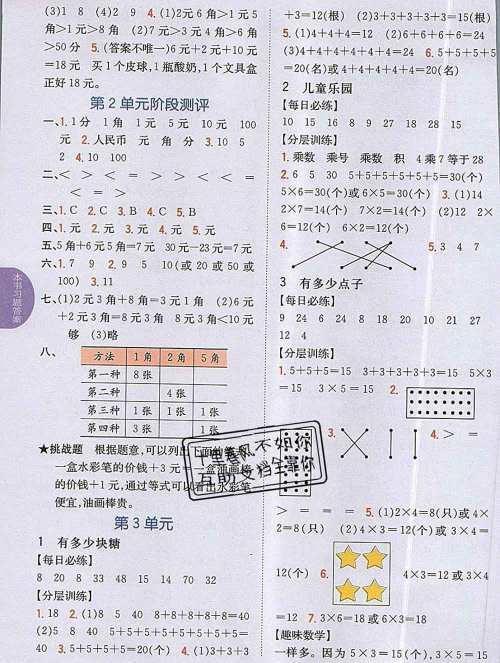 (3)1 8 (4)2 9 4.(1)2元6角>1元5
角>1元>8角 (2)7元>3元4角>6角
>50分 5.(答案不唯一)6元+2元+10元
=18元 买1个皮球,1瓶酸奶,1个文具盒
正好18元。
第2单元阶段测评
一、1.1分 1角 1元 5元 10元 100
元 2.人民币 元 角 分 3.10 5
2 4.10 100
二、< > < > > < < =
< = >
三、1.C 2.C 3.B 4.C 5.B
四、1.元 2.元 3.元 4.元 5.元
五、5角+6元5角=7元 30元-23元=7元
六、1.7 9 2.9 5 10(或20或50或
100) 3.11
七、(1)2元3角+8角=3元1角 (2)6元
+2元3角=8元3角 8元3角<10元
够 (3)略
八、
方法 1角 2角 5角
第一种 8张
第二种 4张
第三种 1张 1张 1张
第四种 3张 1张
★挑战题 根据题意,可以列出下面的等式:
一盒水彩笔的价钱+3元=一盒油画棒
的价钱+1元,通过等式可以看出水彩笔
便宜,油画棒贵。
第3单元
1 有多少块糖
【每日必练】
8 20 8 33 48 15 14 70 32
【分层训练】
1.18 2.(1)8 5 40 8+8+8+8+8=40
(2)5 8 40 5+5+5+5+5+5+5+5=
40 3.5+5+5+5=20(个) 4.(1)3+3+3
+3=12(根) (2)3+3+3+3+3=15(根)
5.(1)4+4+4=12 (2)6+6+6+6=24
(3)4+4+4+4+4+4=24 6.5+5+5+5
=20(名)或4+4+4+4+4=20(名)
2 儿童乐园
【每日必练】
10 15 16 8 9 27 18 28 15
【分层训练】
1.乘数 乘号 乘数 积 4乘7等于28
2.6 5 30 5+5+5+5+5+5=30(个)
5×6=30(个)或6×5=30(个) 3.(1)14
2×7=14(个) 7×2=14(个) (2)12 2×
6=12(个) 6×2=12(个)
4.
5.3 4 7
3 有多少点子
【每日必练】
9 24 6 24 8 18 20 10 21 27
12 4
【分层训练】
1.5+5+5=15 3+3+3+3+3=15 5×3
=15 3×5=15 2.
3.
4.> =
> = = = 5.(1)2×4=8(只)或4×
2=8(只) (2)4×3=12(个)或3×4=
12(个) 6.
4×3=12或3×4
=12 7.3×6=18或6×3=18
【趣味数学】
一样多。因为5×3=15(个),3×5=15
本书习题答案
千里春风不如你
互助文档全靠你